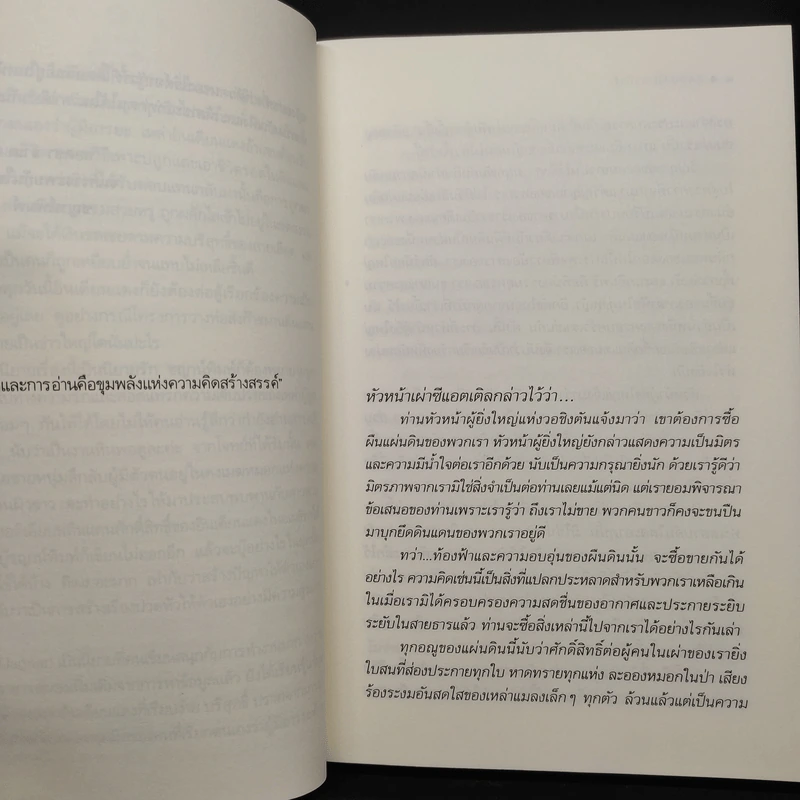 และการอ่านคือขุมพลังแห่งความคิดสร้างสรรค์"
หัวหน้าเผ่าซีแอตเติลกล่าวไว้ว่า...
ท่านหัวหน้าผู้ยิ่งใหญ่แห่งวอชิงตันแจ้งมาว่า เขาต้องการซื้อ
ผืนแผ่นดินของพวกเรา หัวหน้าผู้ยิ่งใหญ่ยังกล่าวแสดงความเป็นมิตร
และความมีน้ำใจต่อเราอีกด้วย นับเป็นความกรุณายิ่งนัก ด้วยเรารู้ดีว่า
มิตรภาพจากเรามิใช่สิ่งจำเป็นต่อท่านเลยแม้แต่นิด แต่เรายอมพิจารณา
ข้อเสนอของท่านเพราะเรารู้ว่า ถึงเราไม่ขาย พวกคนขาวก็คงจะขนปืน
มาบุกยึดดินแดนของพวกเราอยู่ดี
ทว่า...ท้องฟ้าและความอบอุ่นของผืนดินนั้น จะซื้อขายกันได้
อย่างไร ความคิดเช่นนี้เป็นสิ่งที่แปลกประหลาดสำหรับพวกเราเหลือเกิน
ในเมื่อเรามิได้ครอบครองความสดชื่นของอากาศและประกายระยิบ
ระยับในสายธารแล้ว ท่านจะซื้อสิ่งเหล่านี้ไปจากเราได้อย่างไรกันเล่า
ทุกอณูของแผ่นดินนี้นับว่าศักดิ์สิทธิ์ต่อผู้คนในเผ่าของเรายิ่ง
ใบสนที่ส่องประกายทุกใบ หาดทรายทุกแห่ง ละอองหมอกในป่า เสียง
ร้องระงมอันสดใสของเหล่าแมลงเล็กๆ ทุกตัว ล้วนแล้วแต่เป็นความ